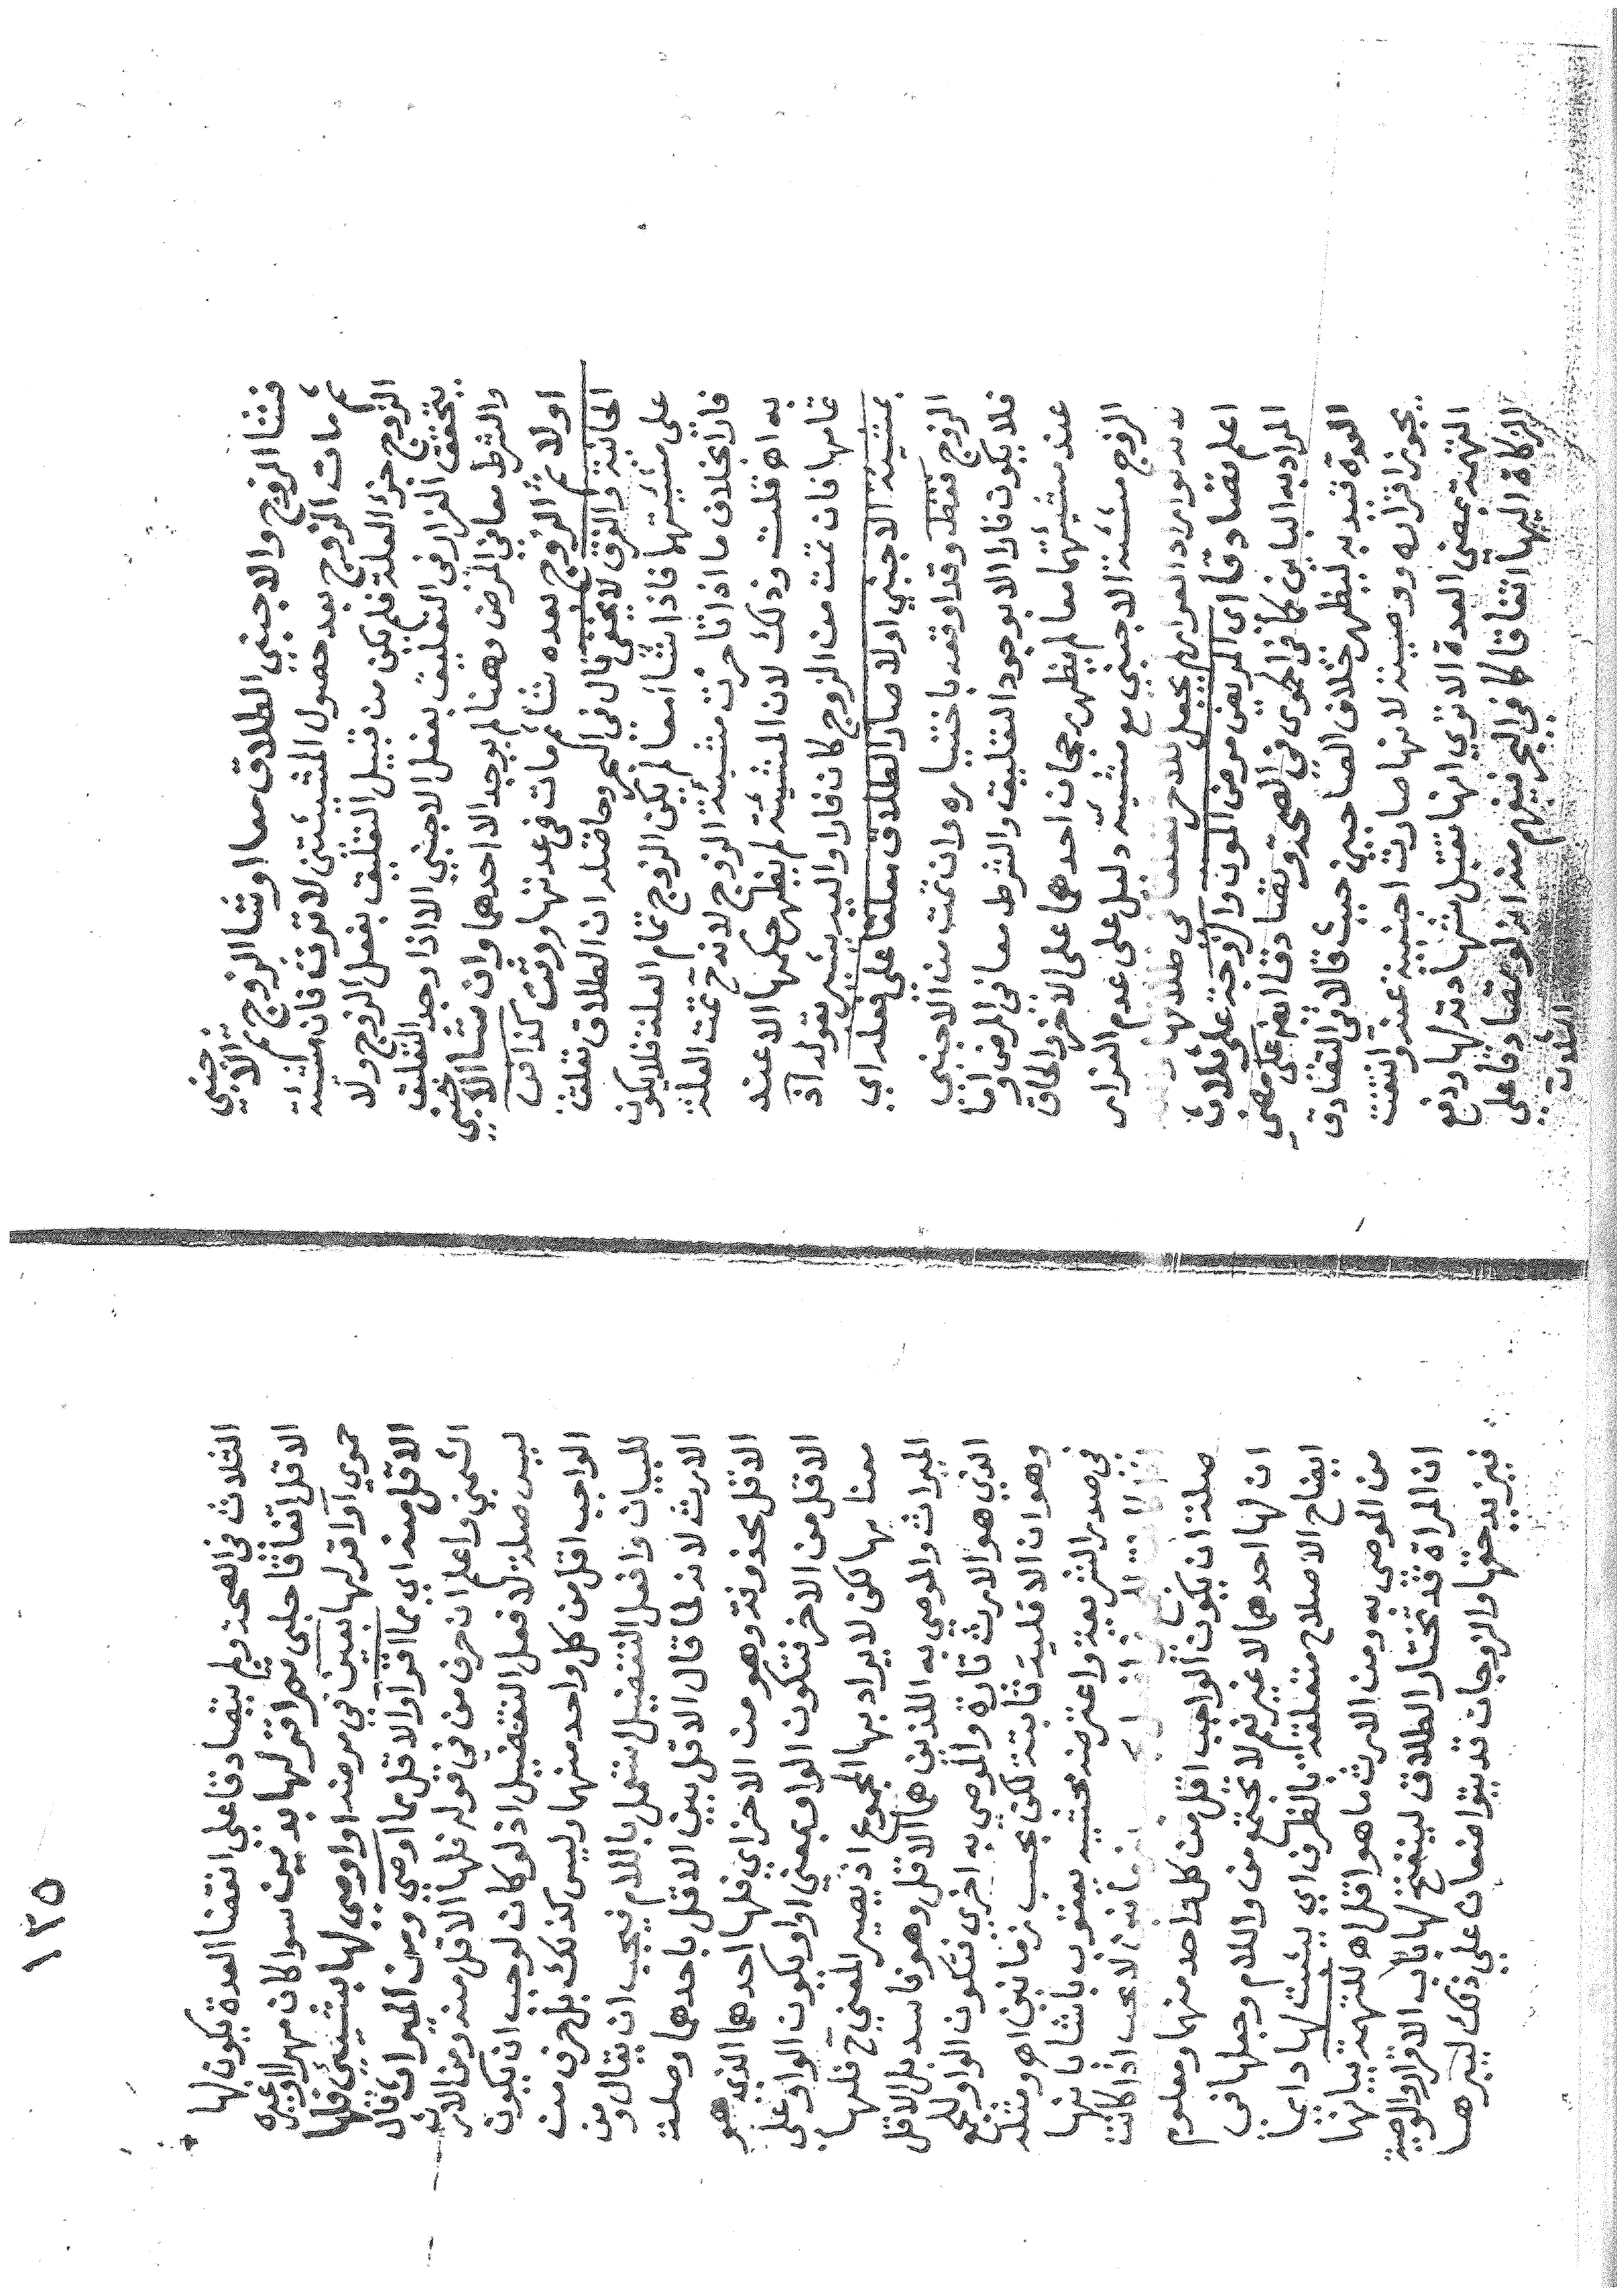 فشا الزوج والاجنبي الطلاق معا اوشا الزوج ثم الاجنبي
ثم مات الزوج بعد حصول المشيئتين لا ترث فان مشيئة
الزوج جزء العلة فلم يكن من قبيل التعليق بفعل الزوج ولا
يتحقق الفرار في التعليق بفعل الاجنبي الا اذا وجد التعليق
والشرط معا في المرض وهنا لم يوجد الا احدهما وان شا الاجنبي
اولا ثم الزوج بعده شا ثم مات في عدتها ورثت كذا في
الخانية والفرق لا يخفى قال في البحر وحاصله ان الطلاق تعلق
على مشيئتهما فاذا شآ معا لم يكن الزوج تمام العلة فلا يكون
فارا بخلاف ما اذا تاخرت مشيئة الزوج لانه ح تمت العلة
به اه قلت وذلك لان المشيئة لم يظهر حكمها الا عند
تمامها فان تمت من الزوج كان فارا واليه يشير بقوله اذ
بمشيئة الاجنبي اولا صار الطلاق معلقا على فعله اي
الزوج فقط وقد اوقعه باختياره وان تمت من الاجنبي
فلا يكون فارا الا بوجود التعليق والشرط معا في المرض واما
عند مشيئتهما معا لم يظهر رجحان احدهما على الاخر والحاق
الزوج مشيئة الاجنبي مع مشيئته دليل على عدم الفرار
اعلم تصادقا اي المريض مرض الموت والزوجة على ثلاث
المراد به الباين كما في الحموي في الصحة وتصادقا ايضا على مضي
العدة قيد به ليظهر خلاف الصاحبين حيث قالا في التصادق
يجوز اقراره ووصيته لانها صارت اجنبية عنه وانتفت
التهمة بمضي العدة الا ترى انها تقبل شهادته لها ودفع
الزكاة اليها اتفاقا كما في البحر يفهم منه انه لو تصادقا على
الثلاث
١٢٥
الثلاث في الصحة ولم يتصادقا على انقضا العدة يكون لها
الاقل اتفاقا حلبي ثم اقر لها بدين سوا كان مهرا او غيره
حموي او اقر لها بعين في مرضه او اوصى لها بشيء فلها
الاقل منه اي مما اقر او الاقل مما اوصى ومن الميراث قال
الشمني واعلم ان حرف من في قوله فلها الاقل منه ومن الارث
ليس صلة لافعل التفضيل اذ لو كان لوجب ان يكون
الواجب اقل من كل واحد منهما وليس كذلك بل حرف من
للبيان وافعل التفضيل استعمل باللام فيجب ان يقال او من
الارث لانه لما قال الاقل بين الاقل باحدهما وصلة
الاقل محذوفة وهو من الاخر اي فلها احدهما الذي هو
الاقل من الاخر فتكون الواو بمعنى او او يكون الواو على
معناها لكن لا يراد بها المجموع اذ يصير المعنى ح فلها
الميراث والموصي به اللذين هما الاقل وهو فاسد بل الاقل
الذي هو الارث تارة والموصي به اخرى فتكون الواو للجمع
وهو ان الاقلية ثابتة لكن بحسب زمانين اه ومثله
في صدر الشريعة واعترضه محشيه يعقوب باشا بانها
صلة ان يكون الواجب اقل من كل واحد منهما ومعلوم
ان لها احدهما لا غير نعم لا تجتمع من واللام وجعلها في
ايضاح الاصلاح متعلقة بالظرف اي يثبت لها دايما
من الموصى به ومن الارث ما هو اقل اه للتهمة بيانها
ان المراة قد تختار الطلاق لينفتح لها باب الاقرار والوصية
فيزيد حقها والزوجات قد يتواضعان علي ذلك ليبرها